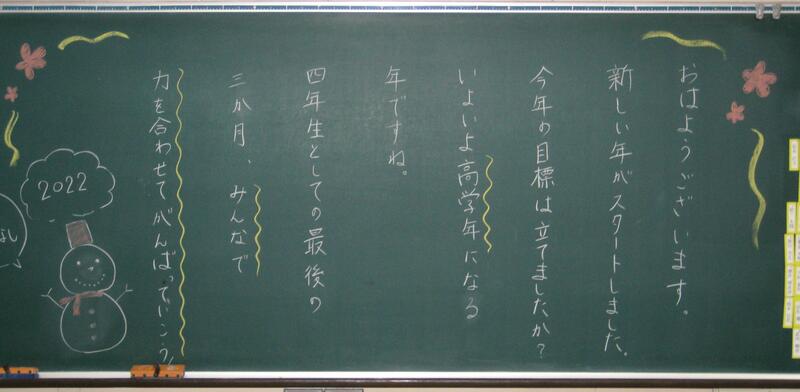 おはようございます。
新しい年がスタートしました。
今年の目標は立てましたか?
いよいよ高学年になる
年ですね。
四年生としての最後の
三か月、みんなで
力を合わせてがんばっていこう!
2022